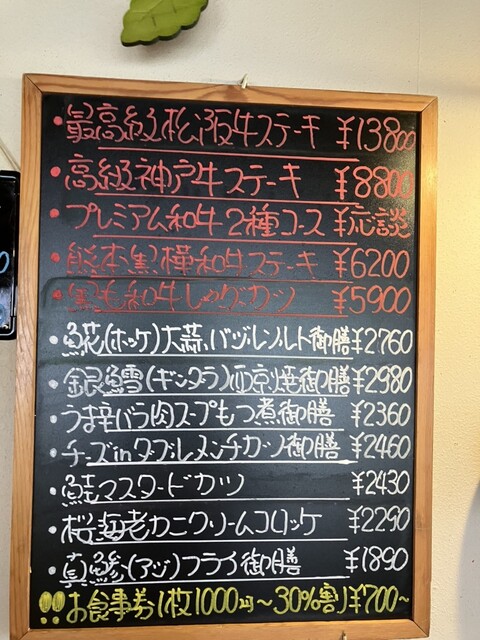 ・最高級松阪牛ステーキ ¥13800
・高級神戸牛ステーキ ¥8800
・プレミアム和牛2種コース ¥応談
・熊本黒樺和牛ステーキ ¥6200
・黒毛和牛しゃぶカツ ¥5900
・𩸽(ホッケ)大蒜バジルソルト御膳 ¥2760
・銀鱈(ギンダラ)西京焼御膳 ¥2980
・うま辛バラ肉スープもつ煮御膳 ¥2360
・チーズinダブルメンチカツ御膳 ¥2460
・鮭マスタードカツ ¥2430
・桜海老カニクリームコロッケ ¥2290
・真鯵(アジ)フライ御膳 ¥1890
!!お食事券1枚1000円〜30%割¥700〜